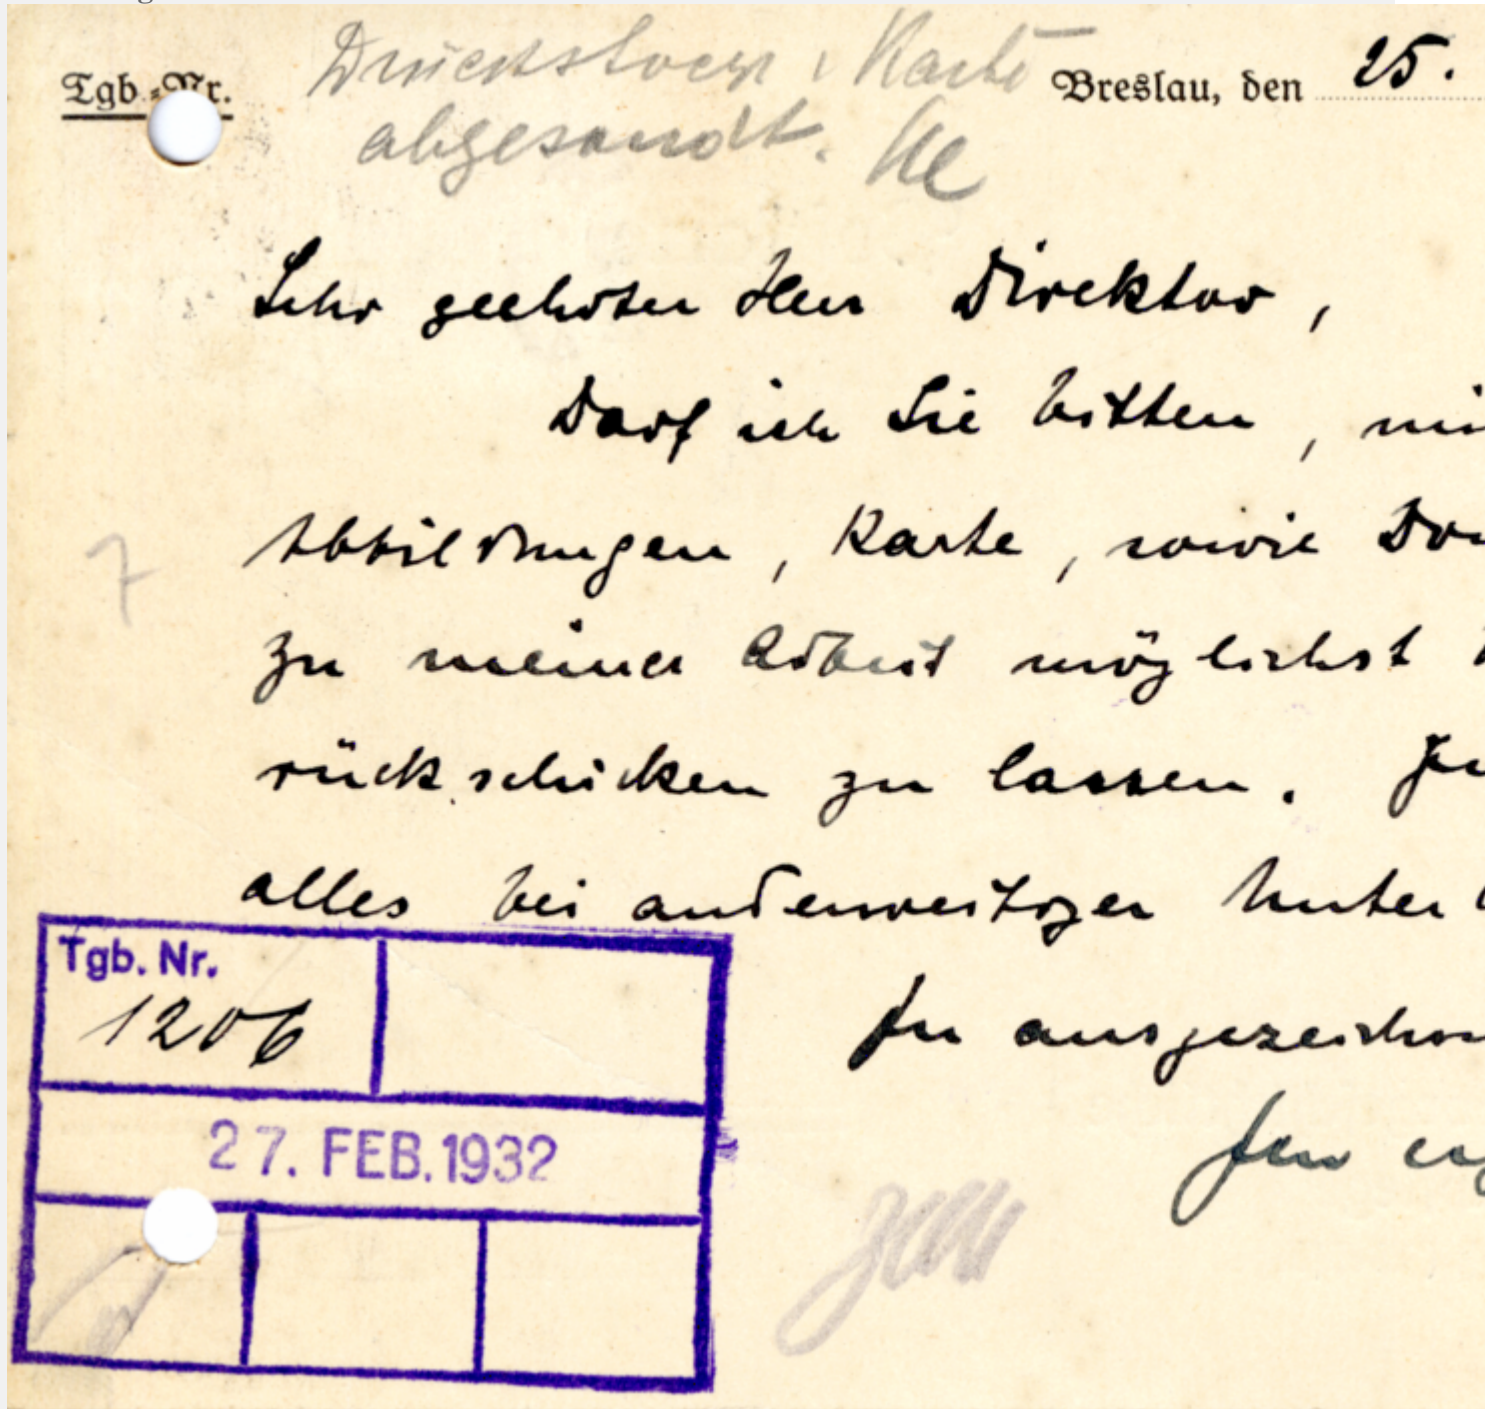 Tgb.-Nr.
Druckstöcke u. Karte
abgesandt.
Breslau, den 25.
Sehr geehrter Herr Direktor,
Darf ich Sie bitten, mi
Abbildungen, Karte, sowie Dru
zu meiner Arbeit möglichst b
rückschicken zu lassen. Ju
alles bei anderweitiger Unterb
Tgb. Nr.
1206
In ausgezeichn
27. FEB. 1932
Ihr erg